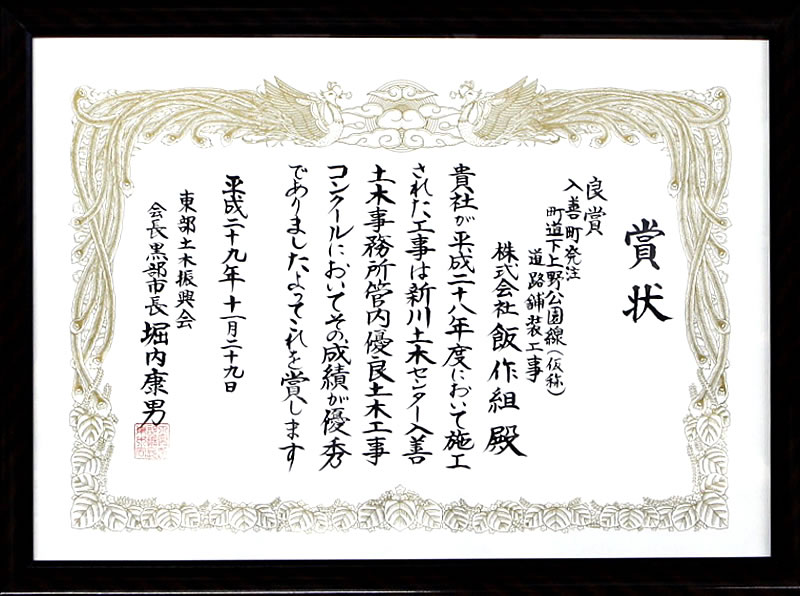 賞状
良賞
入善町発注
町道下上野公園線（仮称）
道路舗装工事
株式会社 飯作組 殿
貴社が平成二十八年度において施工
された工事は新川土木センター入善
土木事務所管内優良土木工事
コンクールにおいてその成績が優秀
でありましたよってこれを賞します
平成二十九年十一月二十九日
東部土木振興会
会長 黒部市長 堀内康男